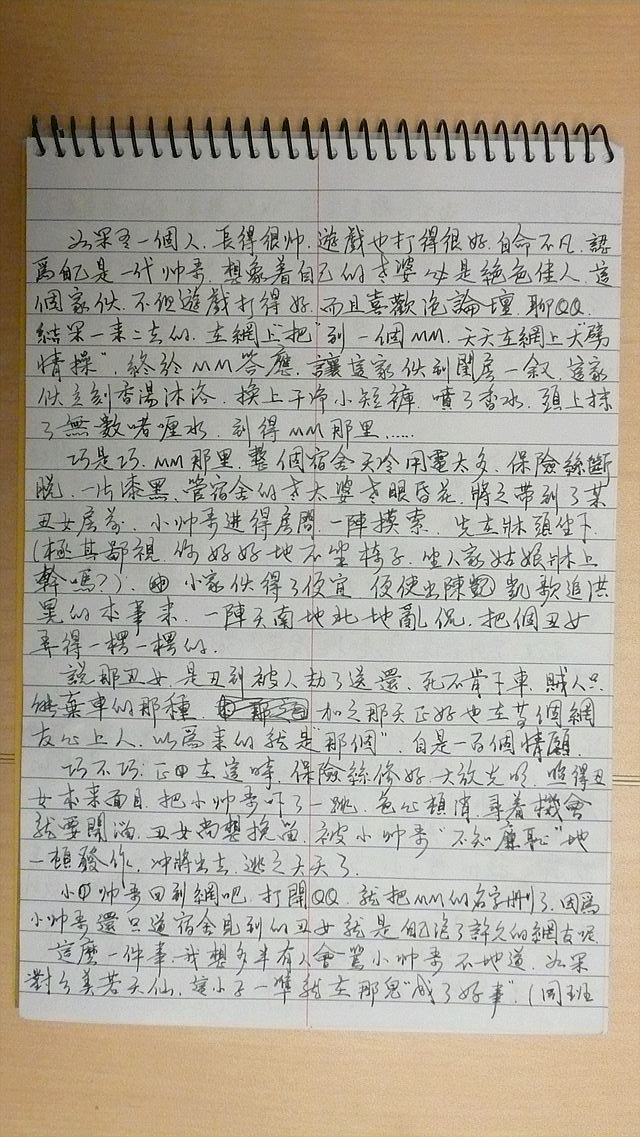 如果有一個人.長得很帅.遊戲也打得很好.自命不凡.認
爲自己是一代帅哥.想象着自己的老婆必是絕色佳人.這
個家伙.不但遊戲打得好.而且喜歡泡論壇.聊QQ.
結果一来二去的.在網上"把"到一個MM.天天在網上大"
情操".終於MM答應.讓這家伙到閨房一叙.這家
伙立刻香湯沐浴.换上干净小短褲.噴了香水.頭上抹
了無數啫喱水.到得MM那里……
巧是巧.MM那里.整個宿舍天冷用電太多.保險絲斷
脱.一片漆黑.管宿舍的老太婆老眼昏花.將之带到了某
丑女房前.小帅哥進得房間.一陣摸索.先在牀頭坐下.
(極其鄙視.你好好地不坐椅子.坐人家姑娘牀上
幹嗎?).小家伙得了便宜.便使出陳凱歌追洪
晃的本事来.一陣天南地北地亂侃.把個丑女
弄得一楞一楞的.
說那丑女.是丑到被人劫了送還.死不肯下車.賊人只
能棄車的那種.加之那天正好也在等個網
友心上人.以爲来的就是"那個".自是一百個情願.
巧不巧.正在這時.保險絲修好.大放光明.照得丑
女本来面目.把小帅哥吓了一跳.色心頓消.尋着機會
就要開溜.丑女尚想挽留.被小帅哥"不知廉恥"地
一頓發作.冲將出去.逃之夭夭了.
小帅哥回到網吧.打開QQ.就把MM的名字刪了.因爲
小帅哥還只道宿舍見到的丑女就是自己泡了許久的網友呢
這麼一件事.我想多半有人會罵小帅哥不地道.如果
對方美若天仙.這小子一準就在那兒"成了好事".(同班